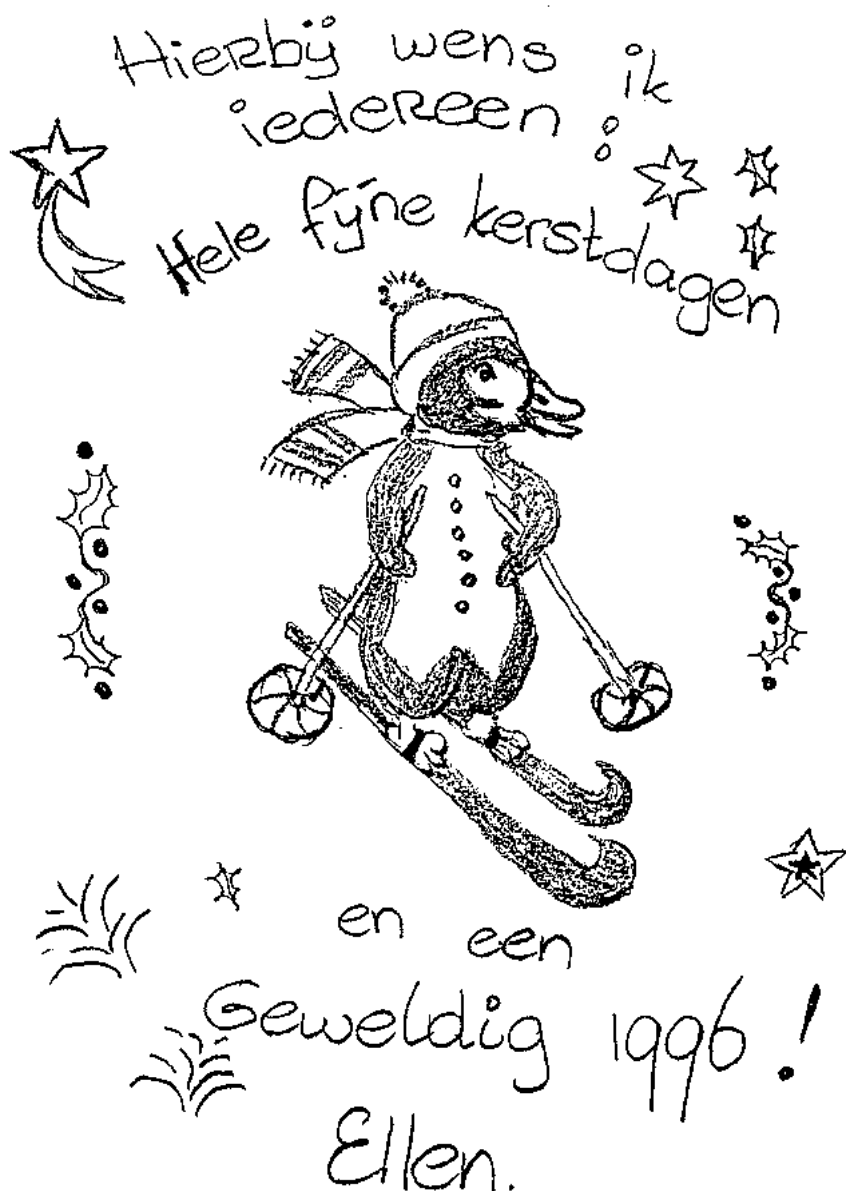 Hierbij wens ik
iedereen :
Hele fijne kerstdagen
en een
Geweldig 1996 !
Ellen.